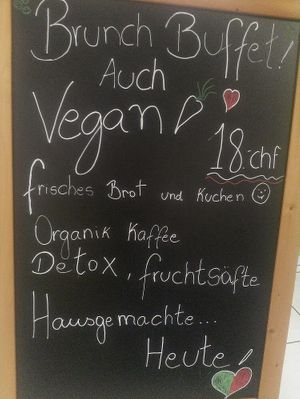 Brunch Buffet!
Auch
Vegan
18.-chf
frisches Brot und Kuchen
Organik Kaffee
Detox, fruchtsäfte
Hausgemachte...
Heute!